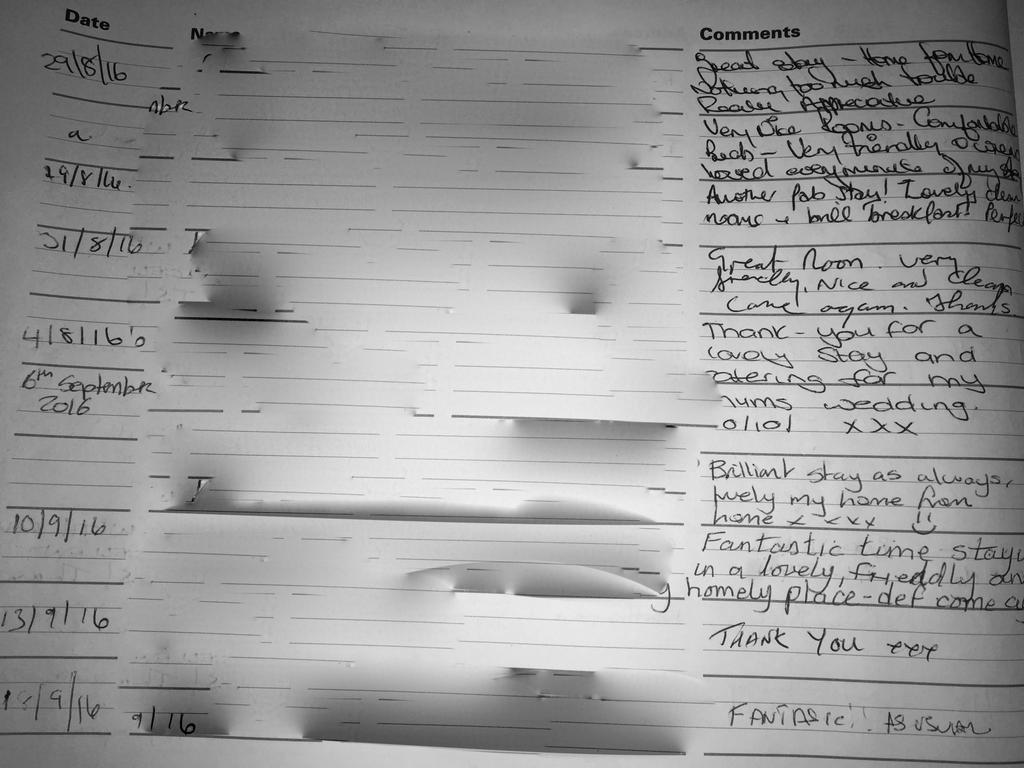 Date
Comments
29/8/16
Great stay - Home from home
Nothing too much trouble
Really Appreciative
Very Nice Rooms - Comfortable
Beds - Very friendly
loved every minute of my
29/8/16.
Another fab stay! Lovely clean
rooms + brill breakfast!
31/8/16
Great Room. Very
friendly, Nice and Clean
Come again. Thanks
4/8/16
Thank-you for a
lovely stay and
catering for my
mums wedding.
10/10! xxx
6th September
2016
Brilliant stay as always,
truely my home from
home x x x x
10/9/16
Fantastic time
in a lovely, friendly
homely place - def come
13/9/16
THANK YOU xxx
/9/16
9/16
FANTASTIC!! AS USUAL